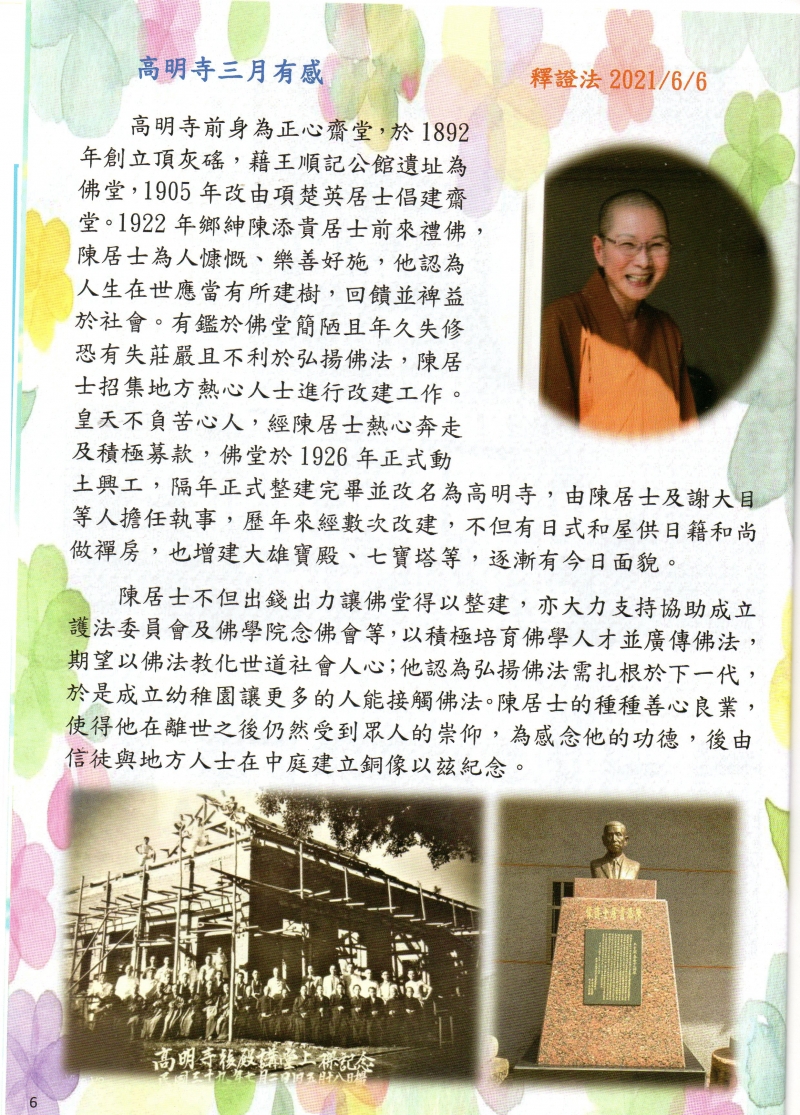 高明寺三月有感
釋證法 2021/6/6
高明寺前身為正心齋堂，於 1892
年創立頂灰磘，藉王順記公館遺址為
佛堂，1905 年改由項楚英居士倡建齋
堂。1922 年鄉紳陳添貴居士前來禮佛，
陳居士為人慷慨、樂善好施，他認為
人生在世應當有所建樹，回饋並裨益
於社會。有鑑於佛堂簡陋且年久失修
恐有失莊嚴且不利於弘揚佛法，陳居
士招集地方熱心人士進行改建工作。
皇天不負苦心人，經陳居士熱心奔走
及積極募款，佛堂於 1926 年正式動
土興工，隔年正式整建完畢並改名為高明寺，由陳居士及謝大目
等人擔任執事，歷年來經數次改建，不但有日式和屋供日籍和尚
做禪房，也增建大雄寶殿、七寶塔等，逐漸有今日面貌。
陳居士不但出錢出力讓佛堂得以整建，亦大力支持協助成立
護法委員會及佛學院念佛會等，以積極培育佛學人才並廣傳佛法，
期望以佛法教化世道社會人心；他認為弘揚佛法需扎根於下一代，
於是成立幼稚園讓更多的人能接觸佛法。陳居士的種種善心良業，
使得他在離世之後仍然受到眾人的崇仰，為感念他的功德，後由
信徒與地方人士在中庭建立銅像以茲紀念。
高明寺後殿講堂上樑記念
6